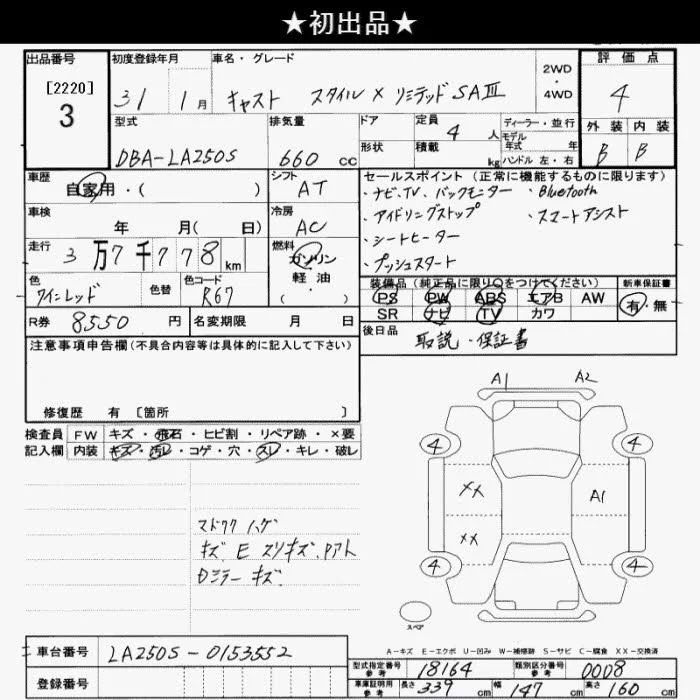 ★初出品★
出品番号
[2220]
3
初度登録年月
31 1月
車名・グレード
キャスト スタイル X リミテッド SAⅢ
2WD
・
4WD
評価点
4
外装 内装
B B
型式
DBA-LA250S
排気量
660 cc
ドア
形状
定員
4 人
積載
kg
ディーラー・並行
モデル
年式 年
ハンドル 左・右
車歴
自家用・( )
シフト
AT
車検
年 月( 日)
冷房
AC
走行
3万7千778km
燃料
ガソリン
軽油
・( )
色
ワインレッド
色替
色コード
R67
R券 8550 円
名変期限 月 日
セールスポイント (正常に機能するものに限ります)
・ナビ、TV、バックモニター ・Bluetooth
・アイドリングストップ ・スマートアシスト
・シートヒーター
・プッシュスタート
装備品(純正品に限り○をつけてください)
PS PW ABS エアB AW
SR ナビ TV カワ
新車保証書
有・無
後日品
取説・保証書
注意事項申告欄(不具合内容等は具体的に記入して下さい)
修復歴 有 〔箇所 〕
検査員
記入欄
FW キズ・飛石・ヒビ割・リペア跡・×要
内装 キズ・汚レ・コゲ・穴・スレ・キレ・破レ
マドワク ハゲ
キズ、E スリキズ、Pアト
Dミラー キズ
A1 A2
4 4
XX A1
XX
4 4
スペア
A-キズ E-エクボ U-凹み W-補修跡 S-サビ C-腐食 XX-交換済
車台番号 LA250S-0153552
登録番号
型式指定番号
参考
18164
類別区分番号
参考
0008
車庫証明用
参考
長さ 339 cm 幅 147 cm 高さ 160 cm